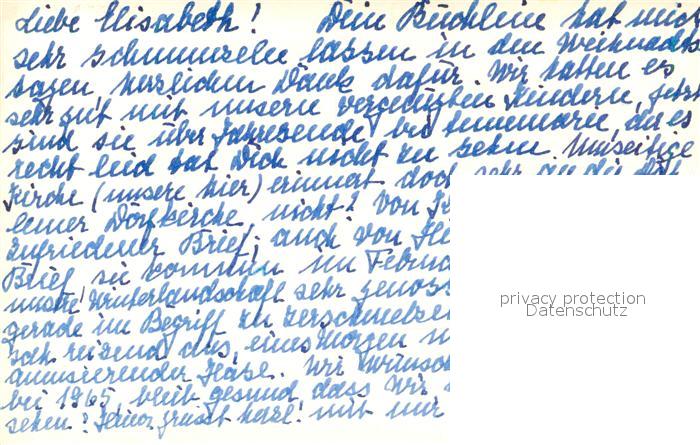 Liebe Elisabeth! Dein Büchlein hat mich
sehr schmunzeln lassen in den Weihnachts
tagen, herzlichen Dank dafür. Wir hatten es
sehr gut mit unsern vergnügten Kindern, jetzt
sind sie über Jahresende bei Annemarie, der es
recht leid tat Dich nicht zu sehen. Umseitige
Kirche (unsere hier) erinnert doch sehr an die
Dorfkirche, nicht? Von
zufriedener Brief, auch von
Brief, sie kommen im Februa
unsre Winterlandschaft sehr
gerade im Begriff zu zerschmelzen
sah reizend aus, eines Morgen
amüsierender Hase. Wir wünsch
bei 1965 bleib gesund, dass wir
sehen! grüsst herzl! mit mir
privacy protection
Datenschutz